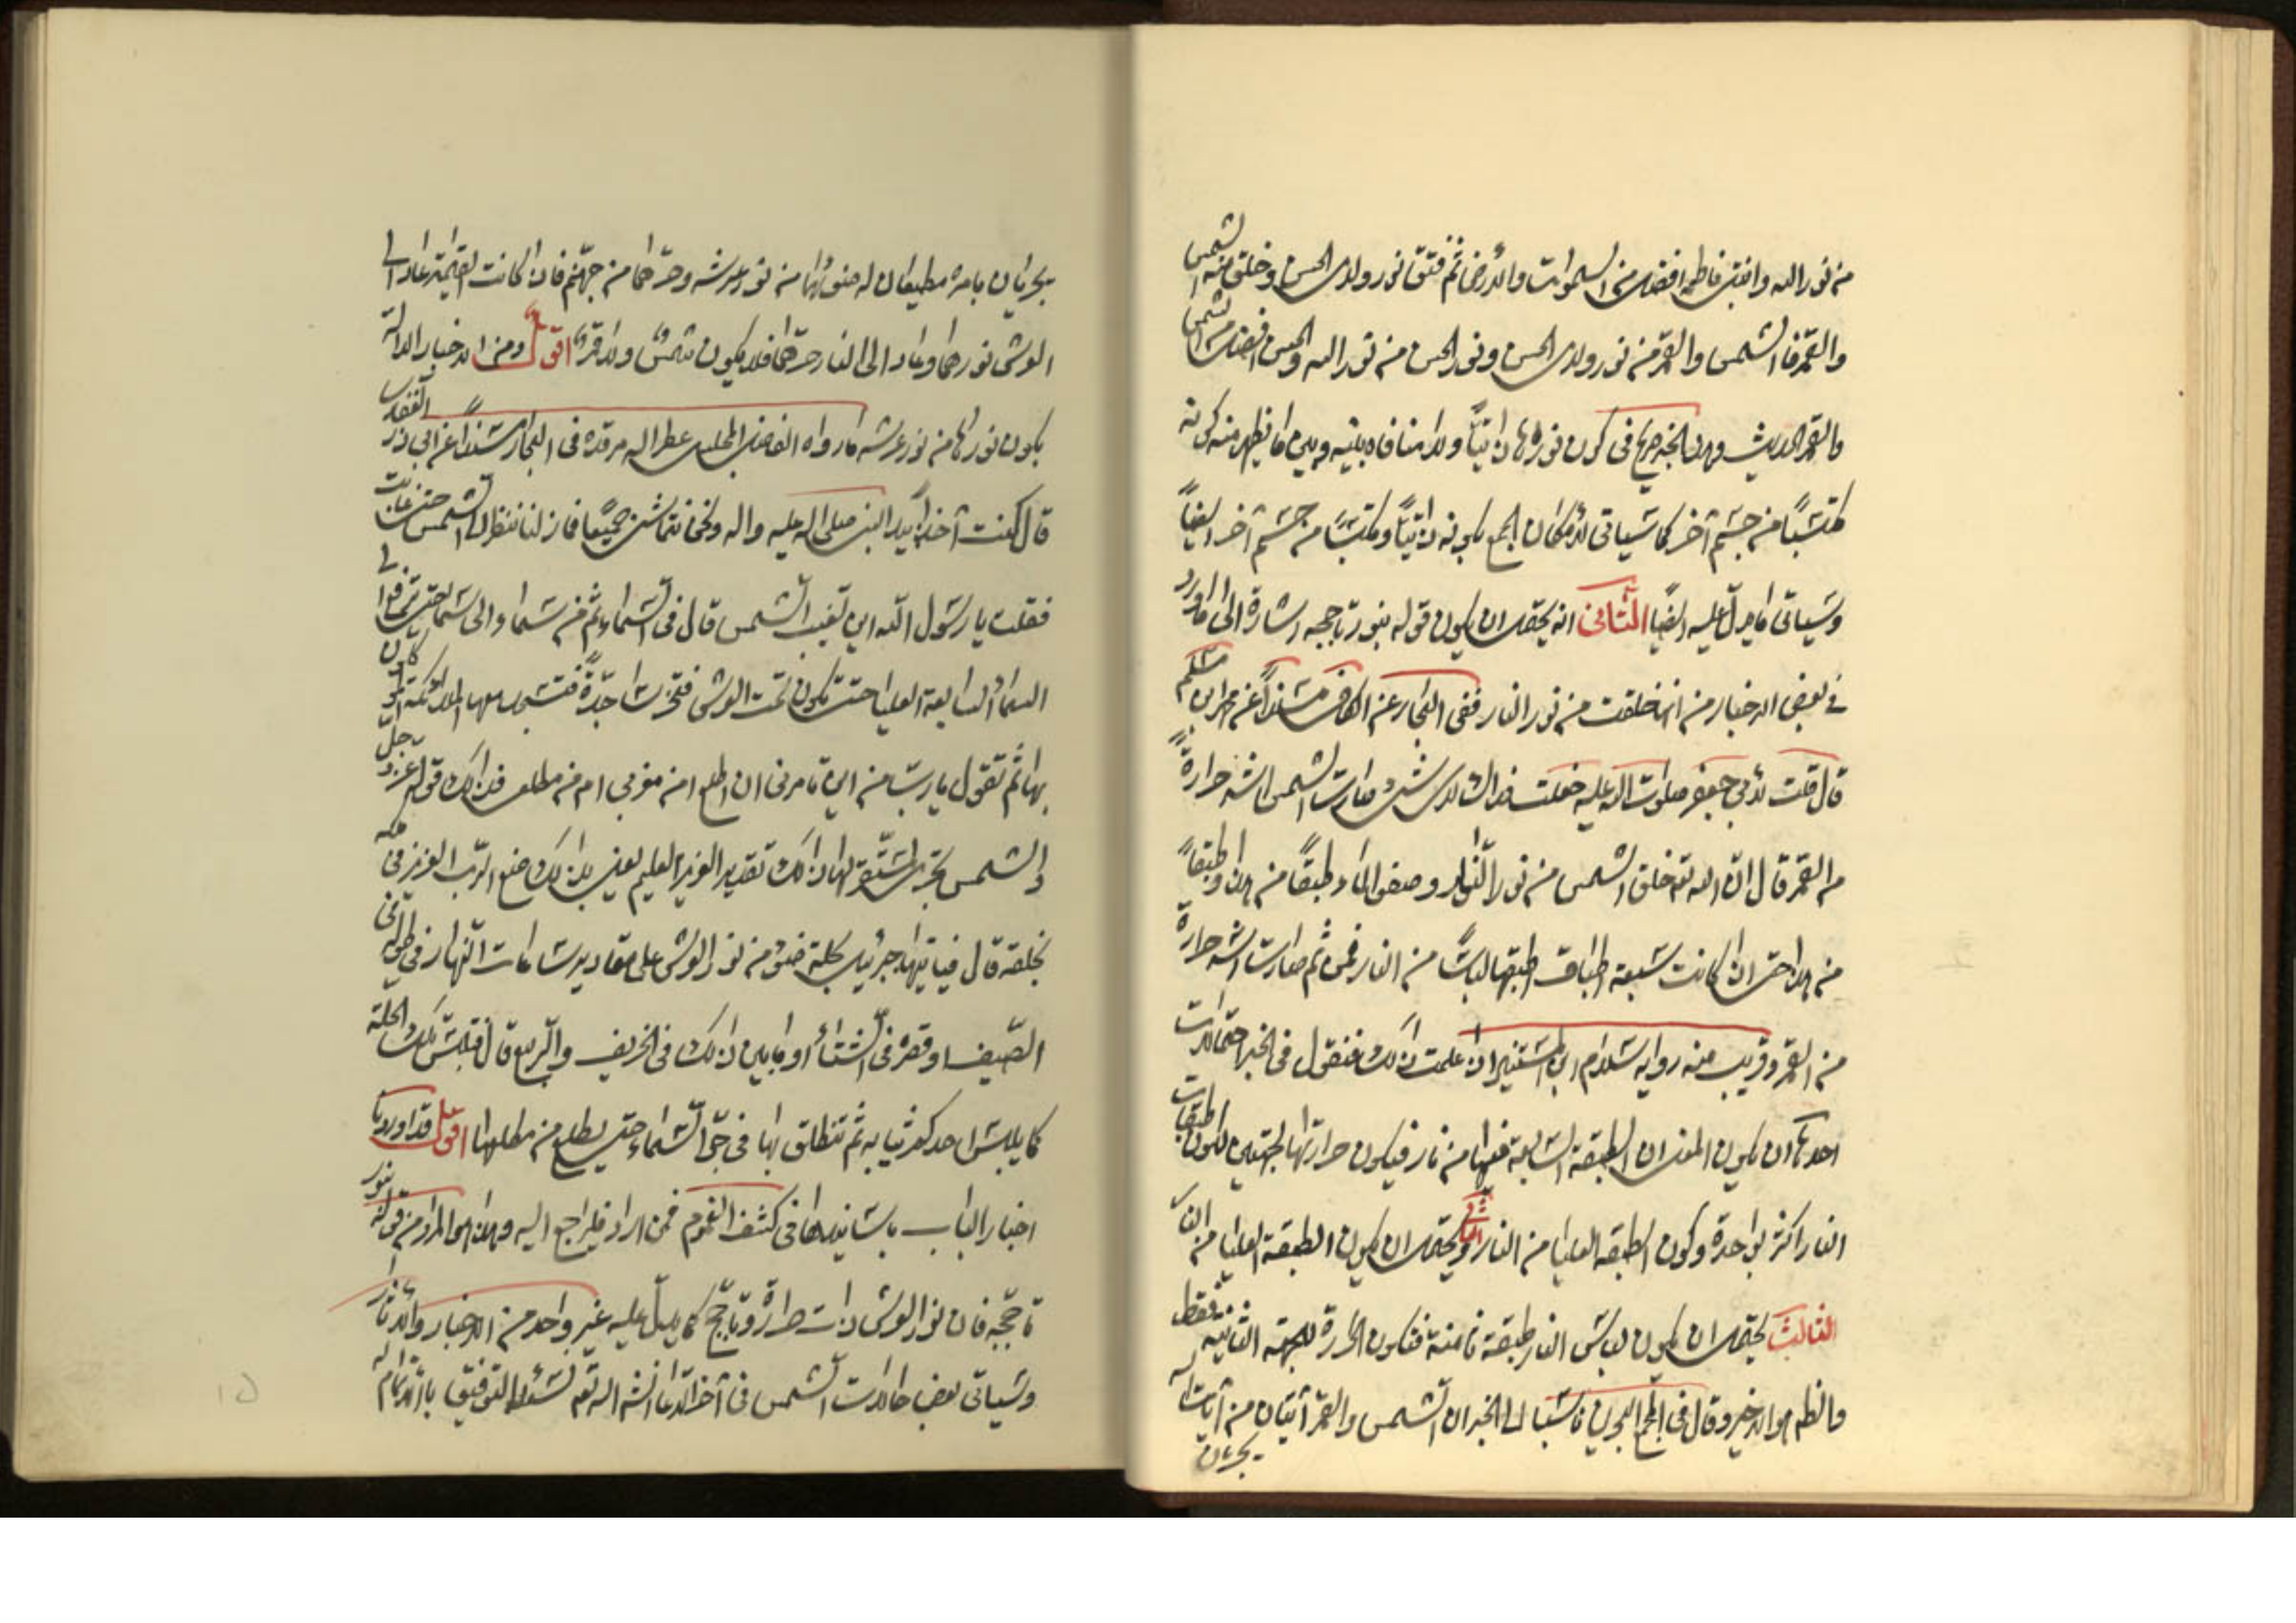 من نور الله وابنتي فاطمه افضل من السموات والأرض ثم فتق نور ولدي الحسن وخلق منه الشمس
والقمر فالشمس والقمر من نور ولدي الحسن ونور الحسن من نور الله والحسن افضل من الشمس
والقمر الحديث وهذا الخبر صريح في كون نورها ذاتيًّا ولا منافاه بينه وبين ما يظهر منه كونه
مكتسبًا من جسم آخر كما سياتي لامكان الجمع بكونه ذاتيًّا ومكتسبًا من جسم آخر ايضًا
وسياتي ما يدلّ عليه ايضًا الثاني انه يحتمل ان يكون قوله بنور تاججه اشارة الى ما ورد
في بعض الاخبار من انها خلقت من نور النار ففي البحار عن الكافي مسندًا عن محمد بن مسلم
قال قلت لأبي جعفر صلوات الله عليه جعلت فداك لاي شيء صارت الشمس اشد حرارةً
من القمر قال انّ الله تعه خلق الشمس من نور النار وصفو الماء طبقًا من هذا وطبقًا
من هذا حتى اذا كانت سبعة اطباق البسها لباسًا من النار فمن ثم صارت اشد حرارة
من القمر وقريب منه رواية سلام بن المستنير اذا علمت ذلك فنقول في الخبر احتمالات
احدها ان يكون المعنى ان الطبقة السابعة فيها من نار فيكون حرارتها لجهتين لكون طبقات
النار اكثر بواحدة وكون الطبقه العليا من النار الثاني ويحتمل ان يكون الطبقة العليا من النار
الثالث يحتمل ان يكون لباس النار طبقة ثامنة فتكون الحرارة للجهة الثانيه فقط
والظاهر هو الاخير وقال في مجمع البحرين ناسبا الى الخبر ان الشمس والقمر آيتان من آيات الله
يجريان
يجريان بامره مطيعان له ضوئهما من نور عرشه وحرّهما من جهنم فاذا كانت القيمة عاد الى
العرش نورهما وعاد الى النار حرّهما فلا يكون شمسٌ ولا قمرٌ اقول ومن الاخبار الدالة
بكون نورها من نور عرشه ما رواه الفاضل المجلسي عطر الله مرقده في البحار مسندًا عن ابي ذر الغفاري
قال كنت آخذًا بيد النبي صلى الله عليه واله ونحن نتماشى جميعًا فما زلنا ننظر الى الشمس حتى غابت
فقلت يا رسول الله اين تغيب الشمس قال في السماء ثم من سماء الى سماء حتى ترفع الى
السماء السابعة العليا حتى تكون تحت العرش فتخرّ ساجدةً فتسجد معها الملائكة الموكلون
بها ثم تقول يا ربّ من اين تامرني ان اطلع امن مغربي ام من مطلعي فذلك قوله عز وجل
والشمس تجري لمستقر لها ذلك تقدير العزيز العليم يعني بذلك صنع الربّ العزيز في ملكه
بخلقه قال فياتيها جبرئيل بحلة ضوء من نور العرش على مقادير ساعات النهار في طوله في
الصّيف او قصره في الشتاء او ما بين ذلك في الخريف والربيع قال فتلبس تلك الحلة
كما يلبس احدكم ثيابه ثم تنطلق بها في جوّ السماء حتى تطلع من مطلعها اقول قد اوردنا
اخبار الباب باسانيدها في كشف الغموم فمن اراد فليراجع اليه وهذا هو المراد من قوله بنور
تاججه فان نور العرش ذات حرارة وتاجّج كما يدلّ عليه غير واحد من الاخبار والآثار
وسياتي بعض حالات الشمس في آخر الدعاء انشاء الله تعه نسئل الله التوفيق بالاتمام